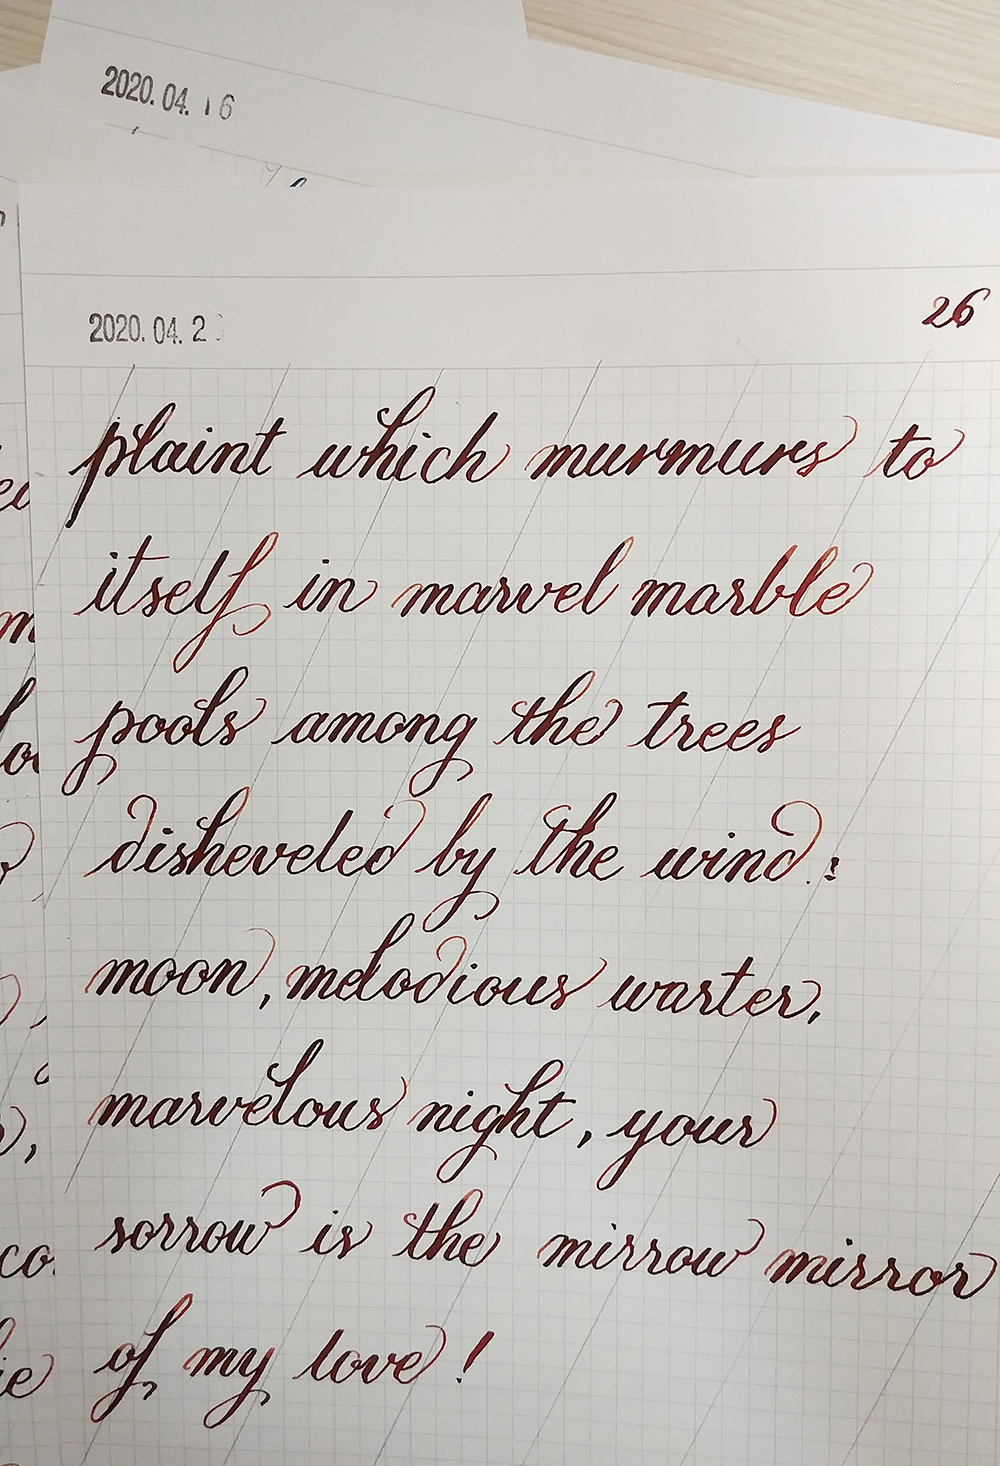 2020. 04. 16
2020. 04. 2
26
plaint which murmurs to
itself in marvel marble
pools among the trees
disheveled by the wind :
moon, melodious warter,
marvelous night, your
sorrow is the mirrow mirror
of my love !